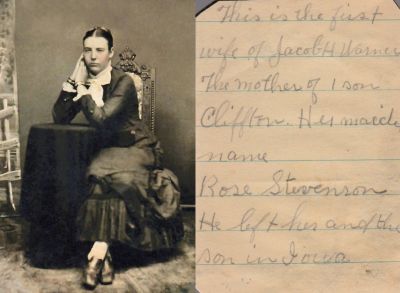 This is the first
wife of Jacob H Warner
The mother of 1 son
Cliffton. Her maiden
name
Rose Stevenson
He left her and the
son in Iowa